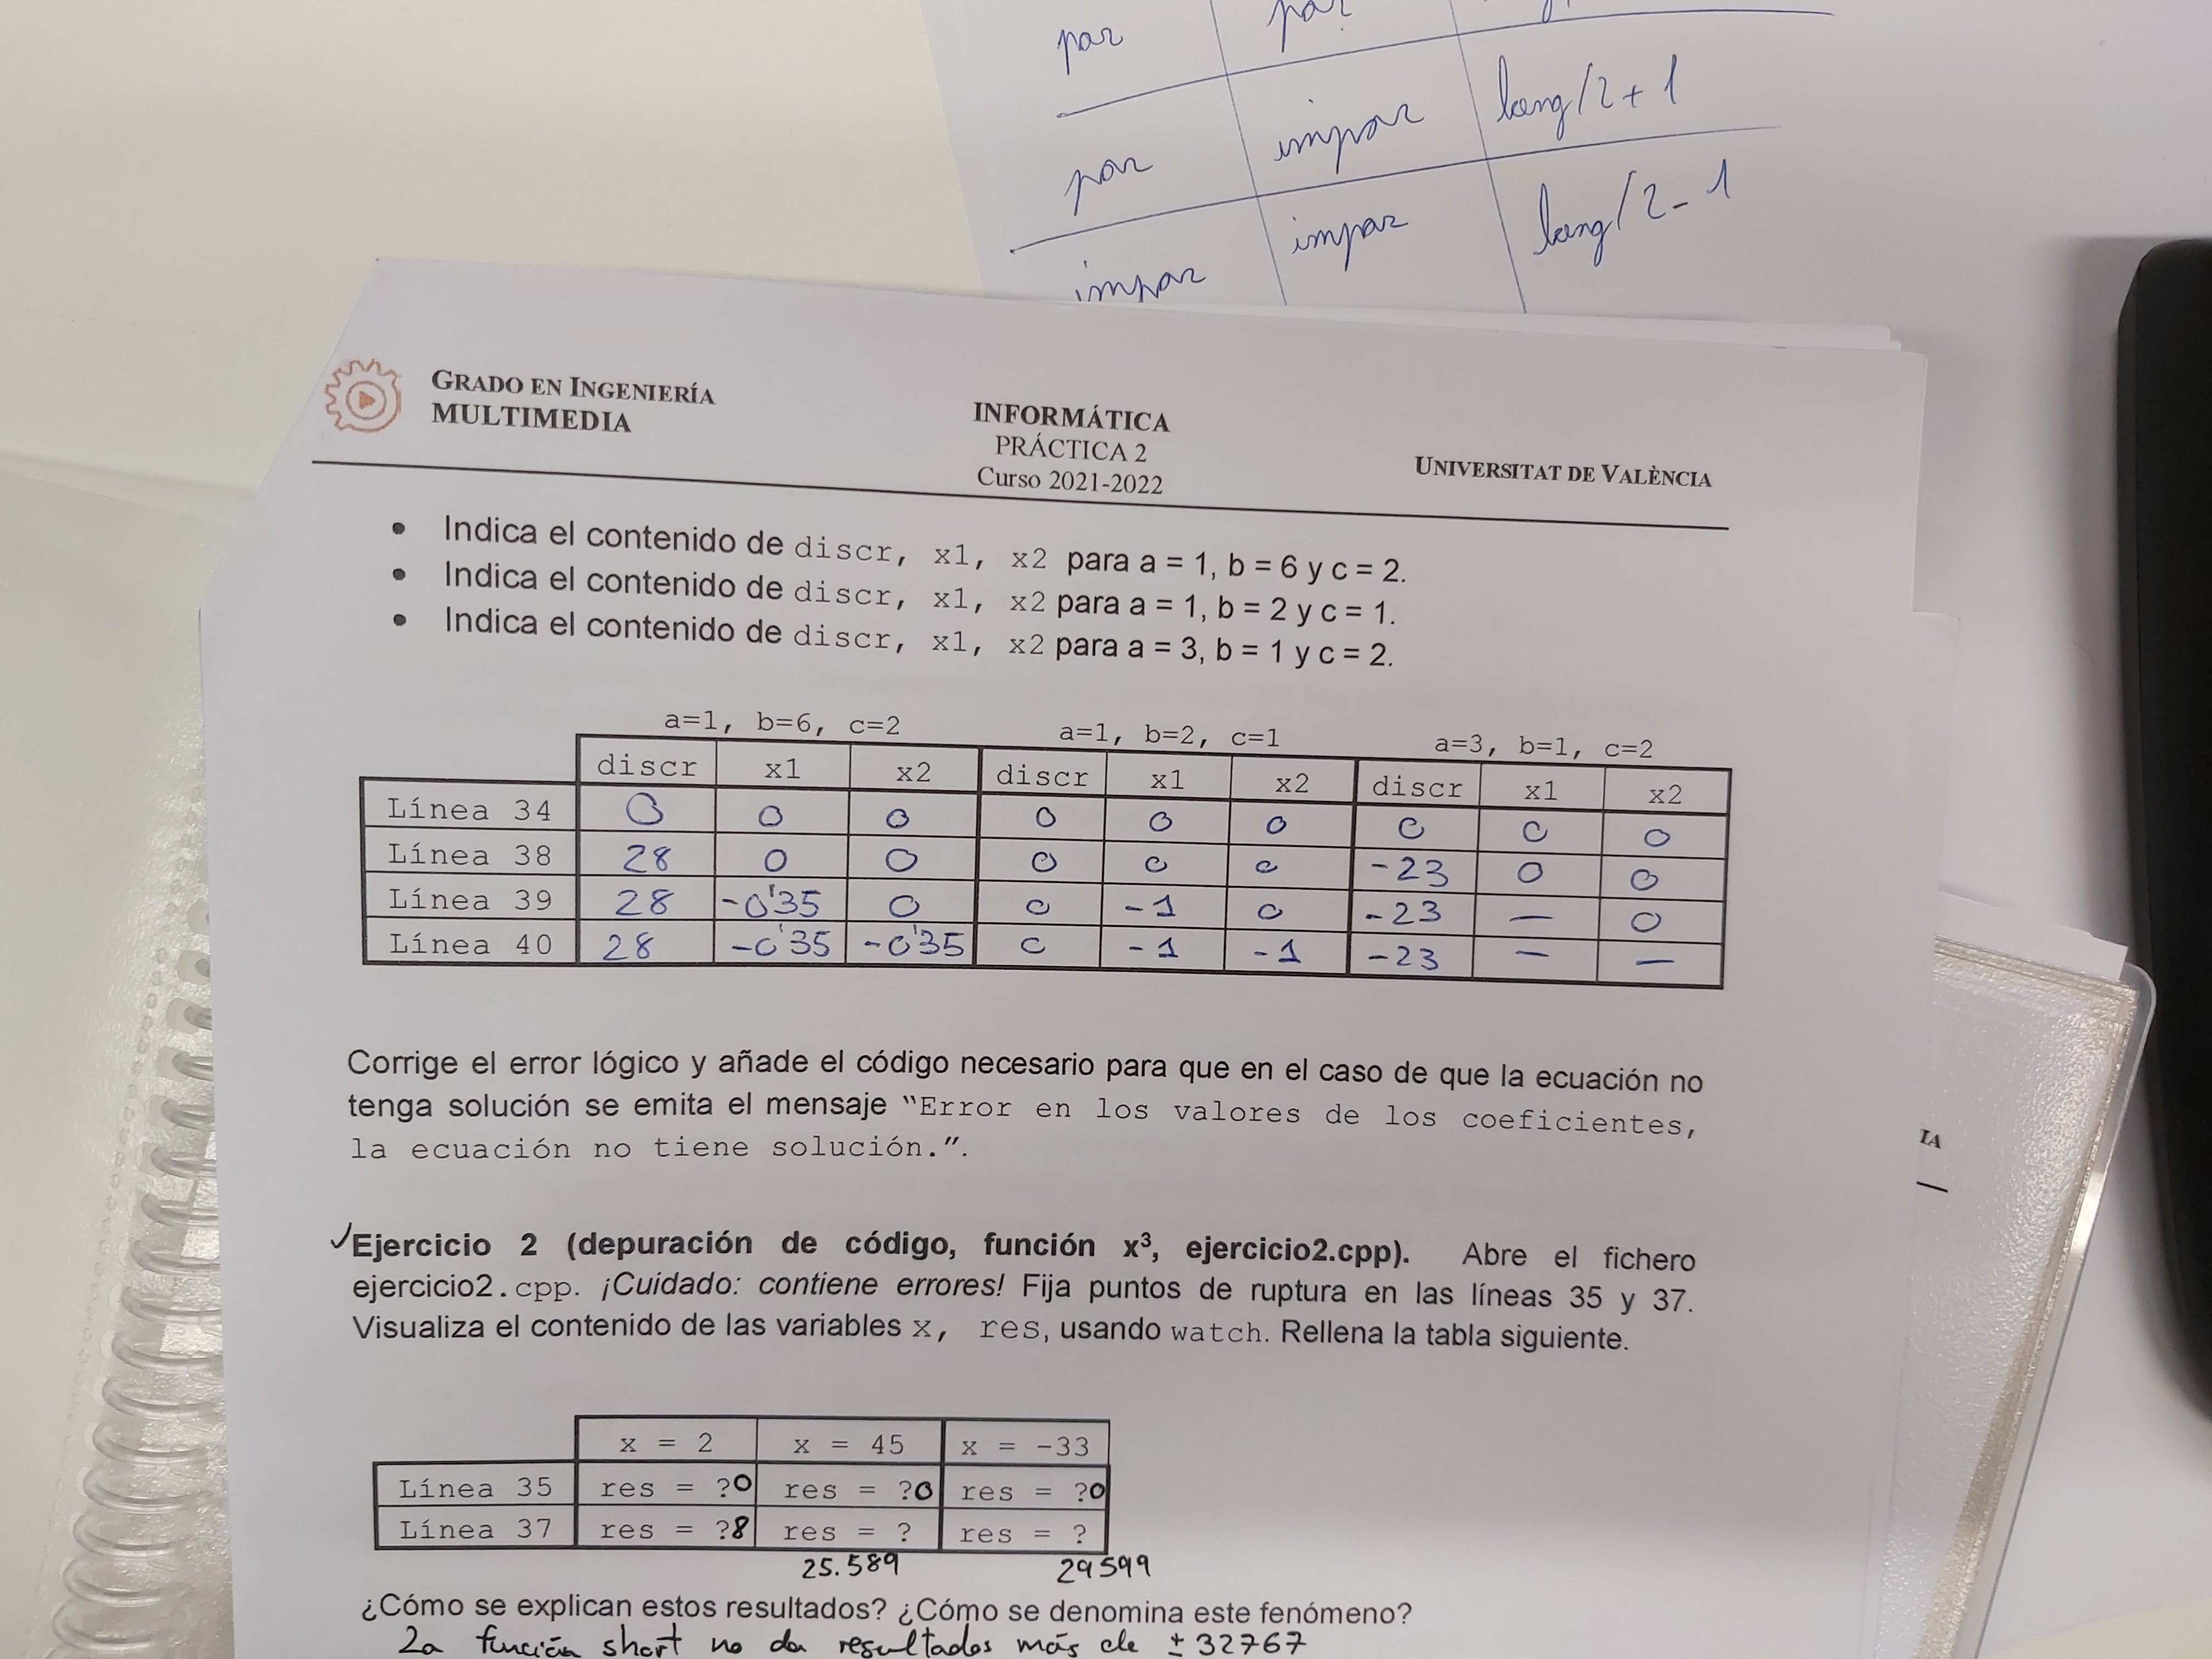 par par
par impar long/2+1
impar impar long/2-1
GRADO EN INGENIERÍA
MULTIMEDIA
INFORMÁTICA
PRÁCTICA 2
Curso 2021-2022
UNIVERSITAT DE VALÈNCIA
• Indica el contenido de discr, x1, x2 para a = 1, b = 6 y c = 2.
• Indica el contenido de discr, x1, x2 para a = 1, b = 2 y c = 1.
• Indica el contenido de discr, x1, x2 para a = 3, b = 1 y c = 2.
a=1, b=6, c=2 a=1, b=2, c=1 a=3, b=1, c=2
discr x1 x2 discr x1 x2 discr x1 x2
Línea 34 0 0 0 0 0 0 0 0 0
Línea 38 28 0 0 0 0 0 -23 0 0
Línea 39 28 -0'35 0 0 -1 0 -23 — 0
Línea 40 28 -0'35 -0'35 0 -1 -1 -23 — —
Corrige el error lógico y añade el código necesario para que en el caso de que la ecuación no
tenga solución se emita el mensaje "Error en los valores de los coeficientes,
la ecuación no tiene solución.".
✓Ejercicio 2 (depuración de código, función x³, ejercicio2.cpp). Abre el fichero
ejercicio2.cpp. ¡Cuidado: contiene errores! Fija puntos de ruptura en las líneas 35 y 37.
Visualiza el contenido de las variables x, res, usando watch. Rellena la tabla siguiente.
x = 2 x = 45 x = -33
Línea 35 res = ?0 res = ?0 res = ?0
Línea 37 res = ?8 res = ? res = ?
25.589 29599
¿Cómo se explican estos resultados? ¿Cómo se denomina este fenómeno?
La función short no da resultados más de ± 32767
IA